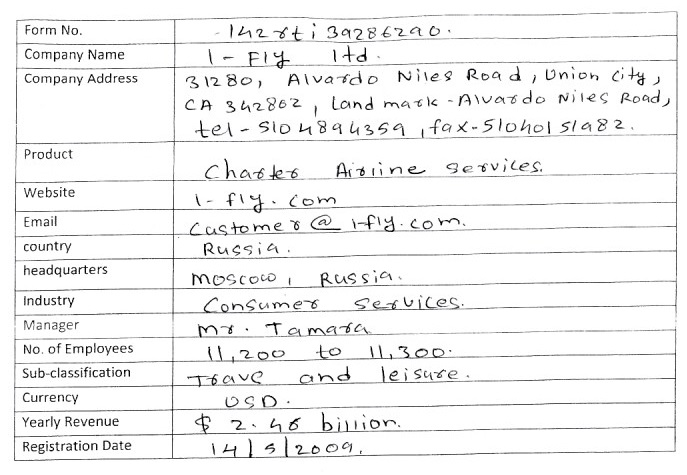 Form No. 142rti39286290.
Company Name I-Fly ltd.
Company Address 31280, Alvardo Niles Road, Union City,
CA 342802, Land mark-Alvardo Niles Road,
tel-5104894359, fax-51040151982.
Product Charter Airline services.
Website I-fly.com
Email Customer@I-fly.com.
country Russia.
headquarters Moscow, Russia.
Industry Consumer services.
Manager Mr. Tamara
No. of Employees 11,200 to 11,300.
Sub-classification Trave and leisure.
Currency USD.
Yearly Revenue $ 2.46 billion.
Registration Date 14/5/2009.